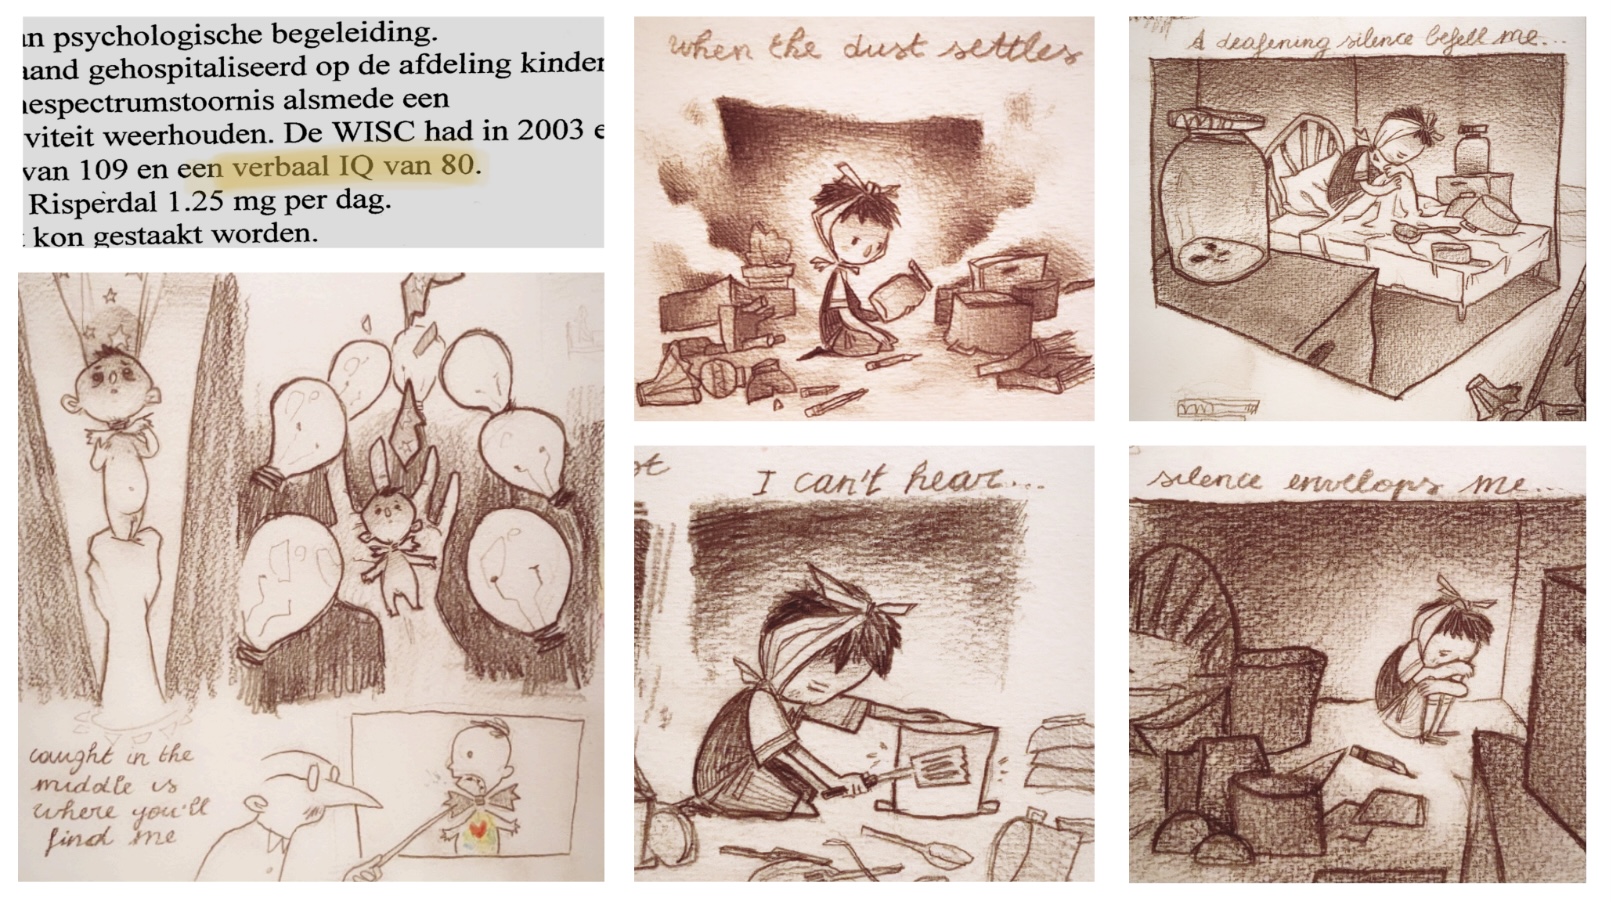 an psychologische begeleiding.
aand gehospitaliseerd op de afdeling kinder
nespectrumstoornis alsmede een
viteit weerhouden. De WISC had in 2003 e
van 109 en een verbaal IQ van 80.
Risperdal 1.25 mg per dag.
kon gestaakt worden.
caught in the
middle is
where you'll
find me
when the dust settles
A deafening silence befell me...
I can't hear...
silence envelops me...